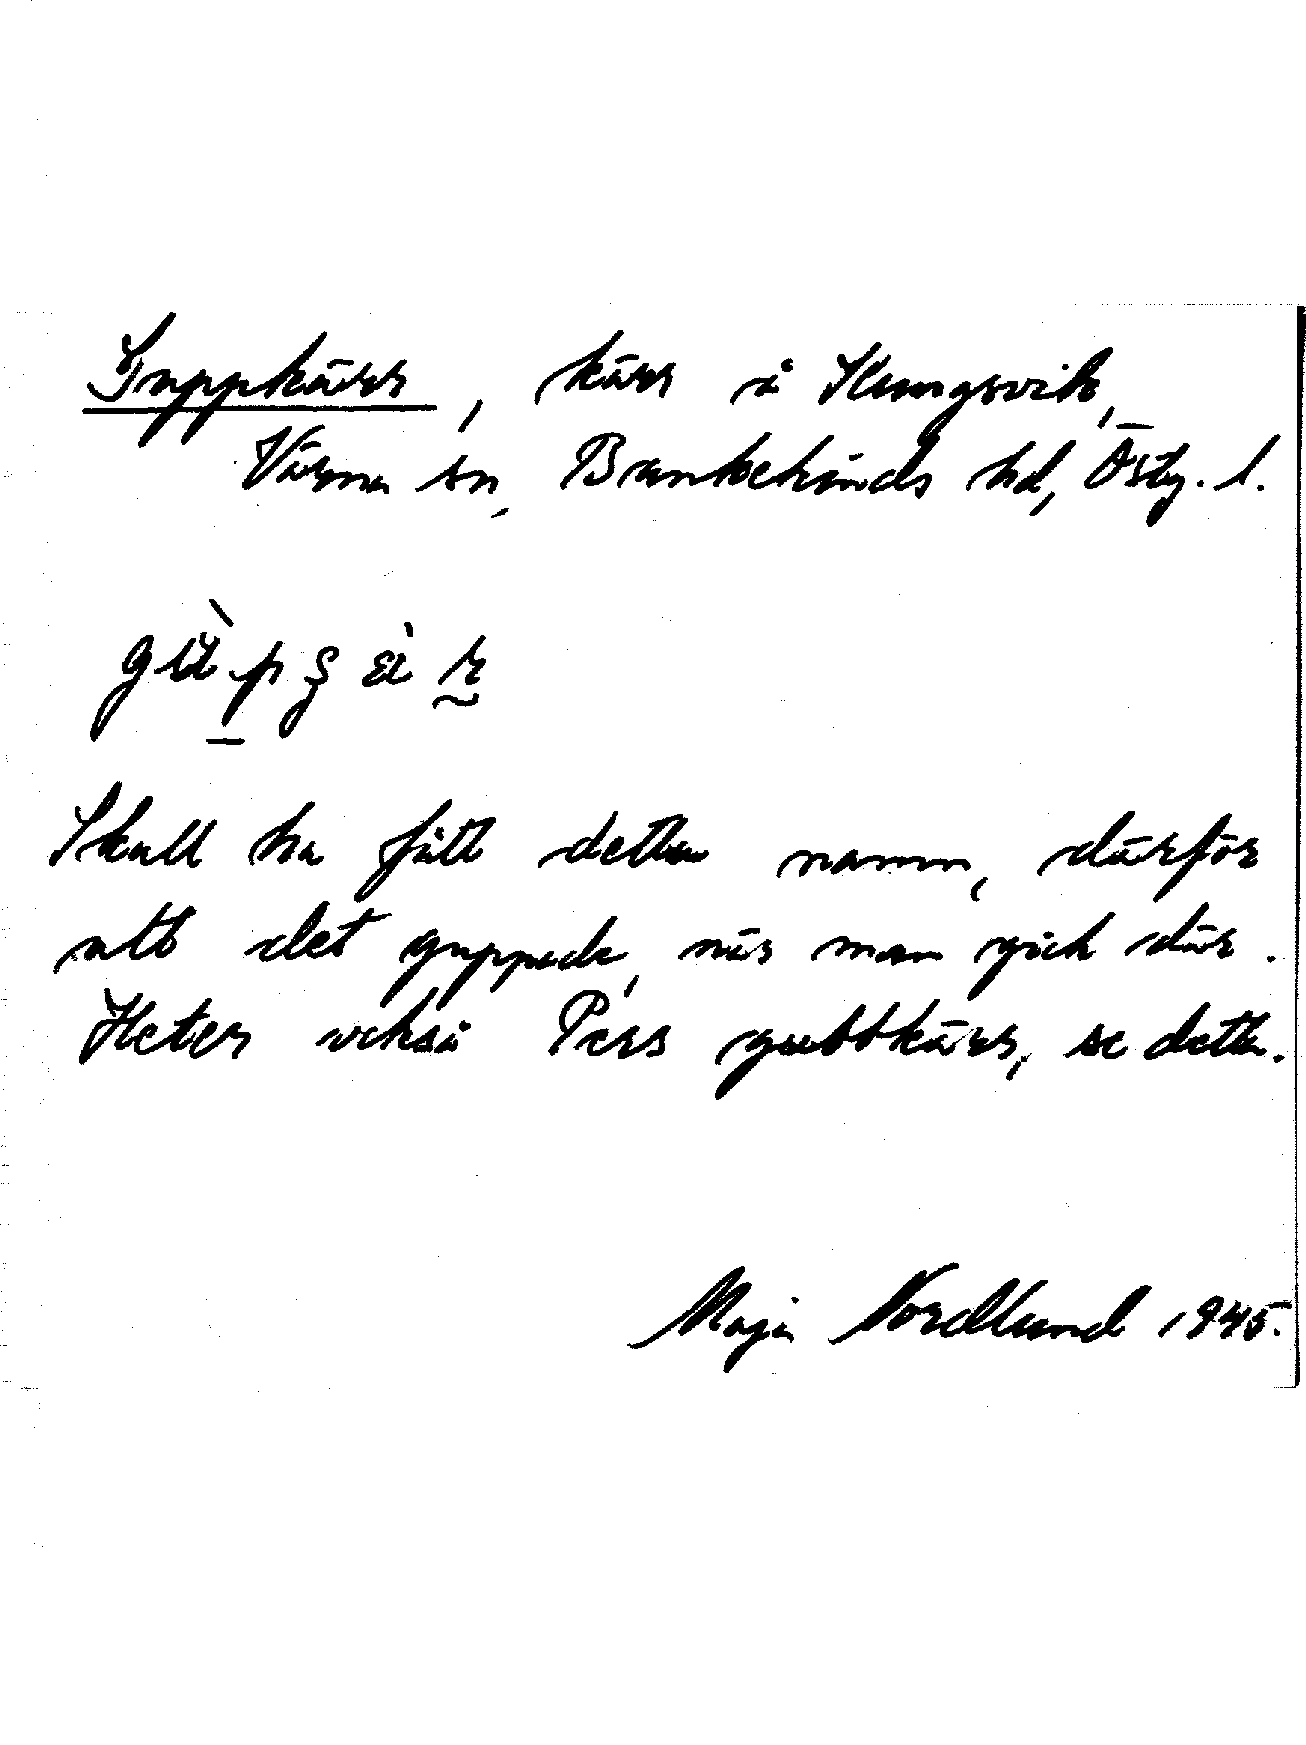 Guppkärr, kärr å Kungsvik,
Vårna sn, Bankekinds hd, Östg. l.
Skall ha fått detta namn, därför
att det guppade, när man gick där.
Heter också Pers gubbkärr, se detta.
Maja Nordlund 1945.